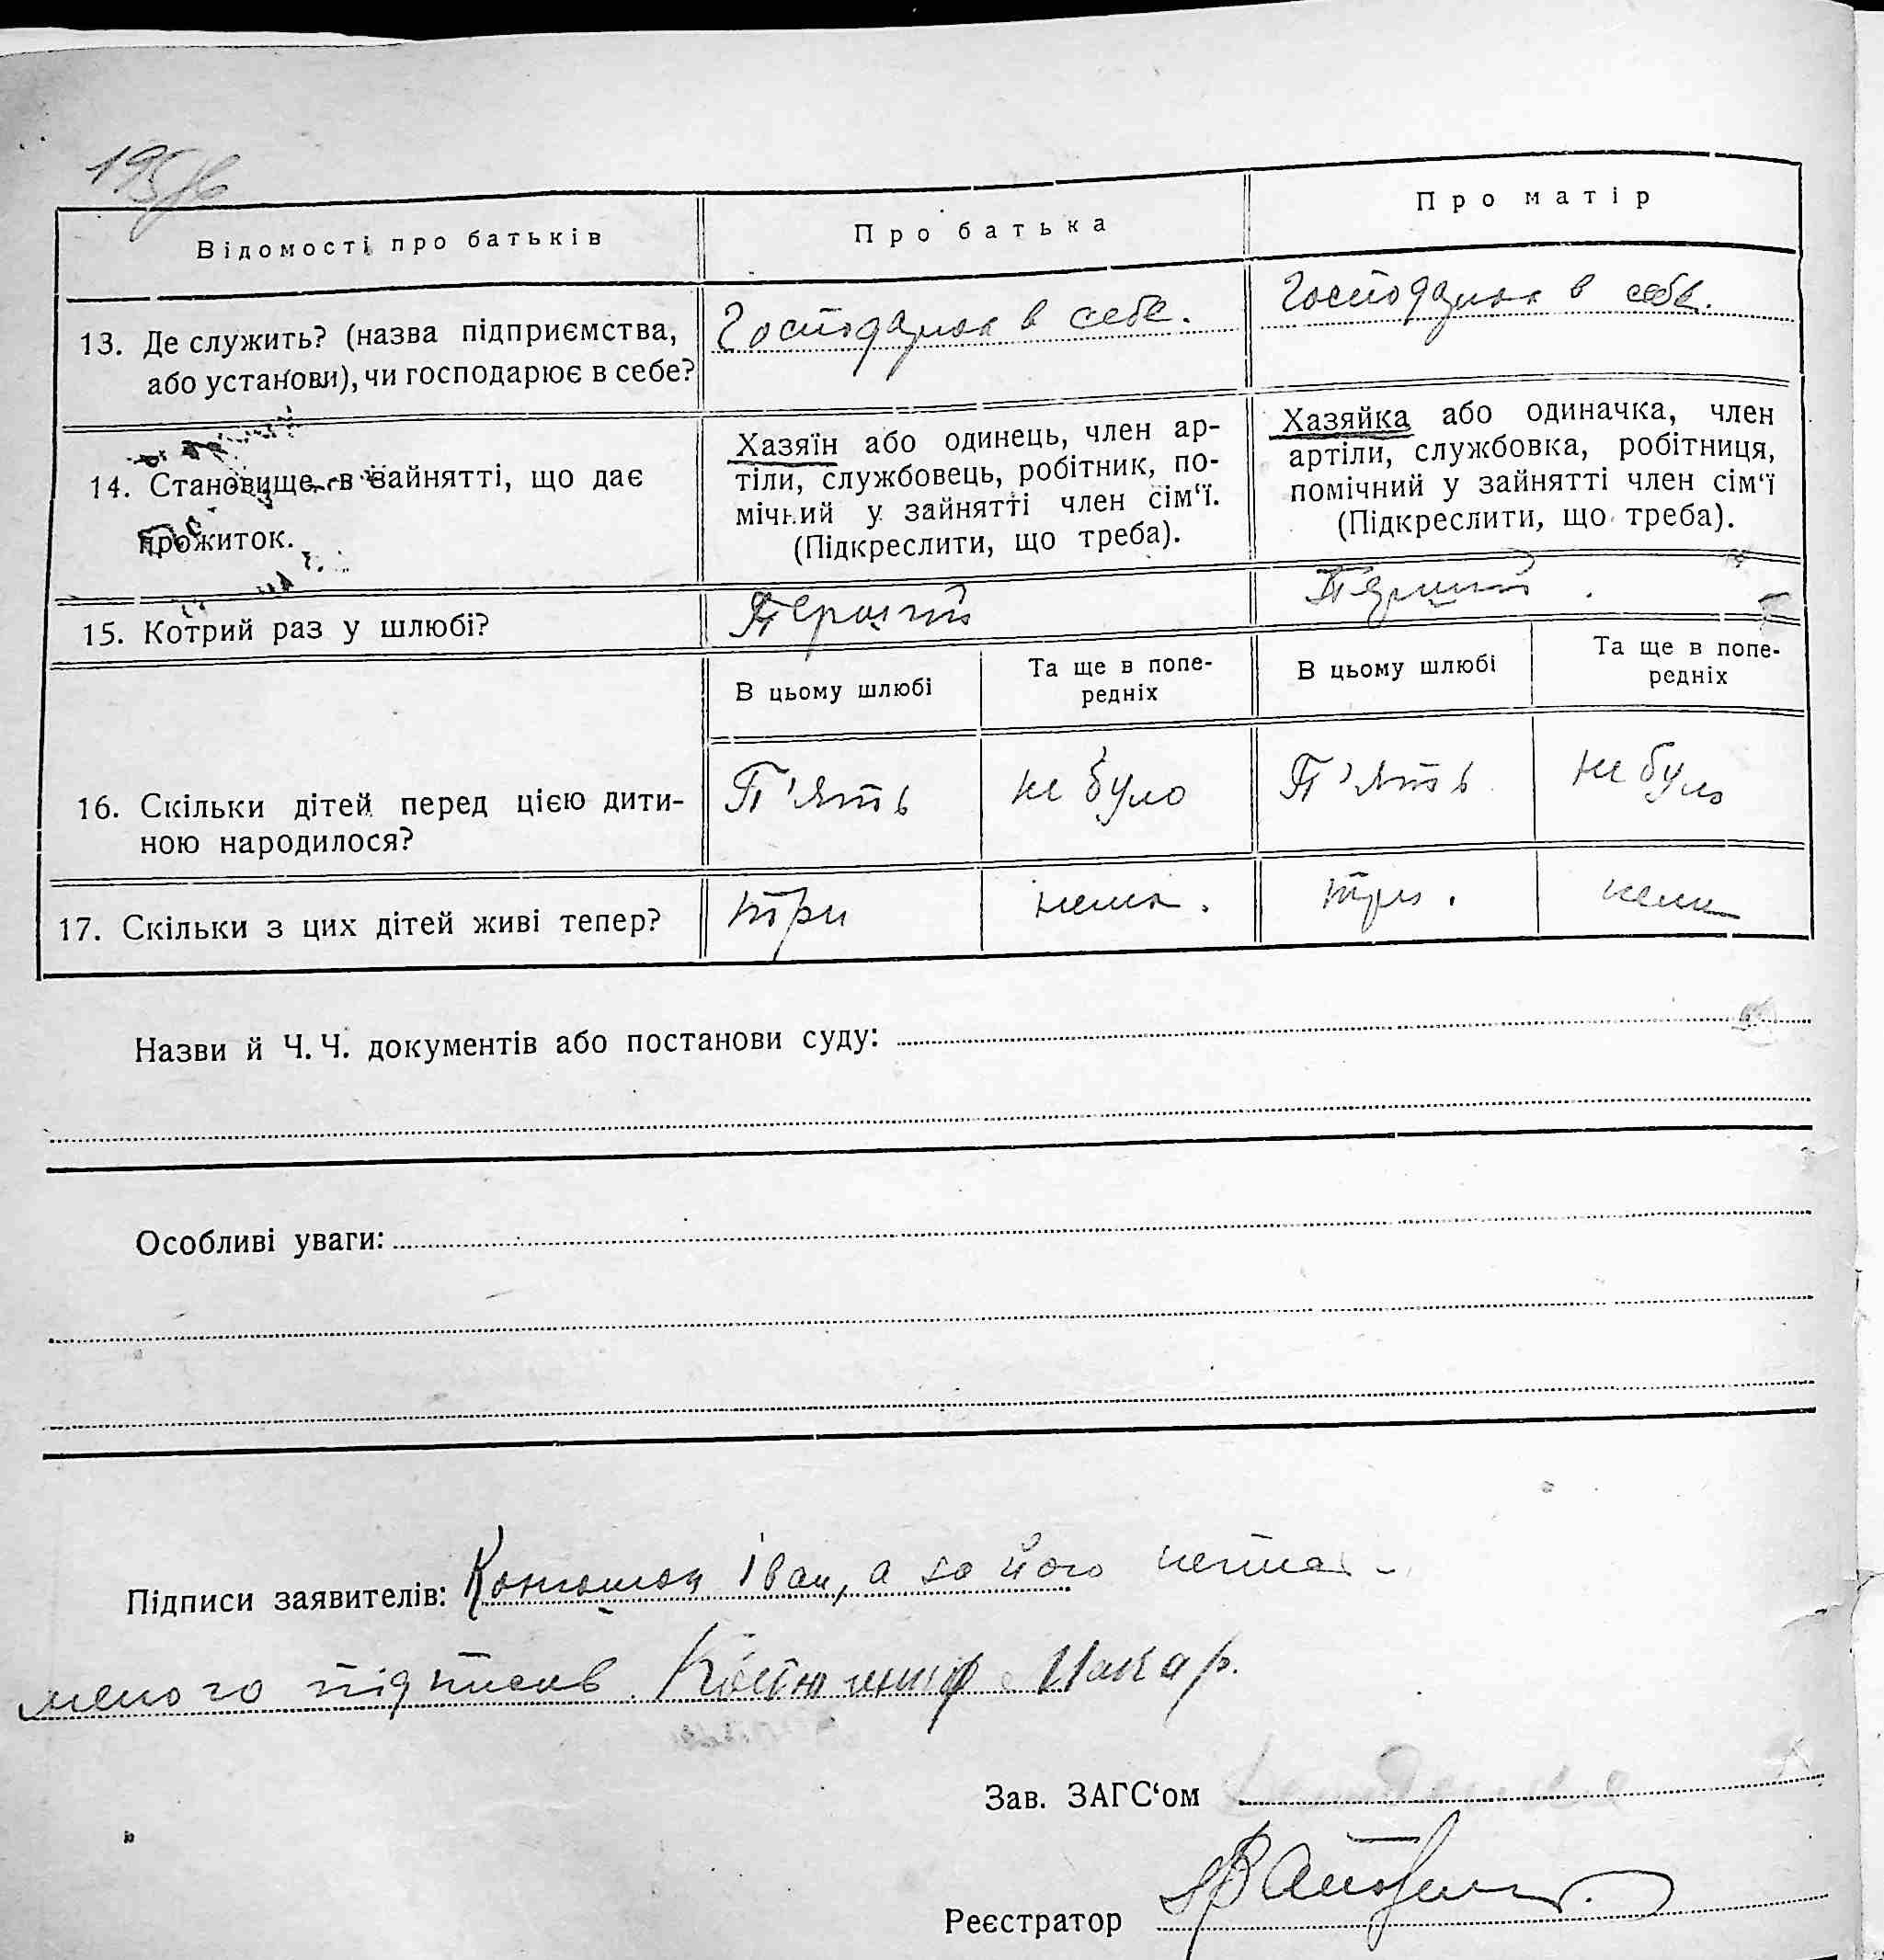 Відомості про батьків Про батька Про матір
13. Де служить? (назва підприємства, або установи), чи господарює в себе? Господарює в себе. Господарює в себе.
14. Становище в зайнятті, що дає прожиток.
Хазяїн або одинець, член ар-
тіли, службовець, робітник, по-
мічний у зайнятті член сім‘ї.
(Підкреслити, що треба).
Хазяйка або одиначка, член
артіли, службовка, робітниця,
помічний у зайнятті член сім‘ї
(Підкреслити, що треба).
15. Котрий раз у шлюбі? Перший Перший
В цьому шлюбі Та ще в попе-
редніх В цьому шлюбі Та ще в попе-
редніх
16. Скільки дітей перед цією дити-
ною народилося? П'ять не було П'ять не було
17. Скільки з цих дітей живі тепер? три нема. три. нема
Назви й Ч. Ч. документів або постанови суду:
Особливі уваги:
Підписи заявителів: Іван, а за його негра-
мотного підписав Макар.
Зав. ЗАГС‘ом
Реєстратор